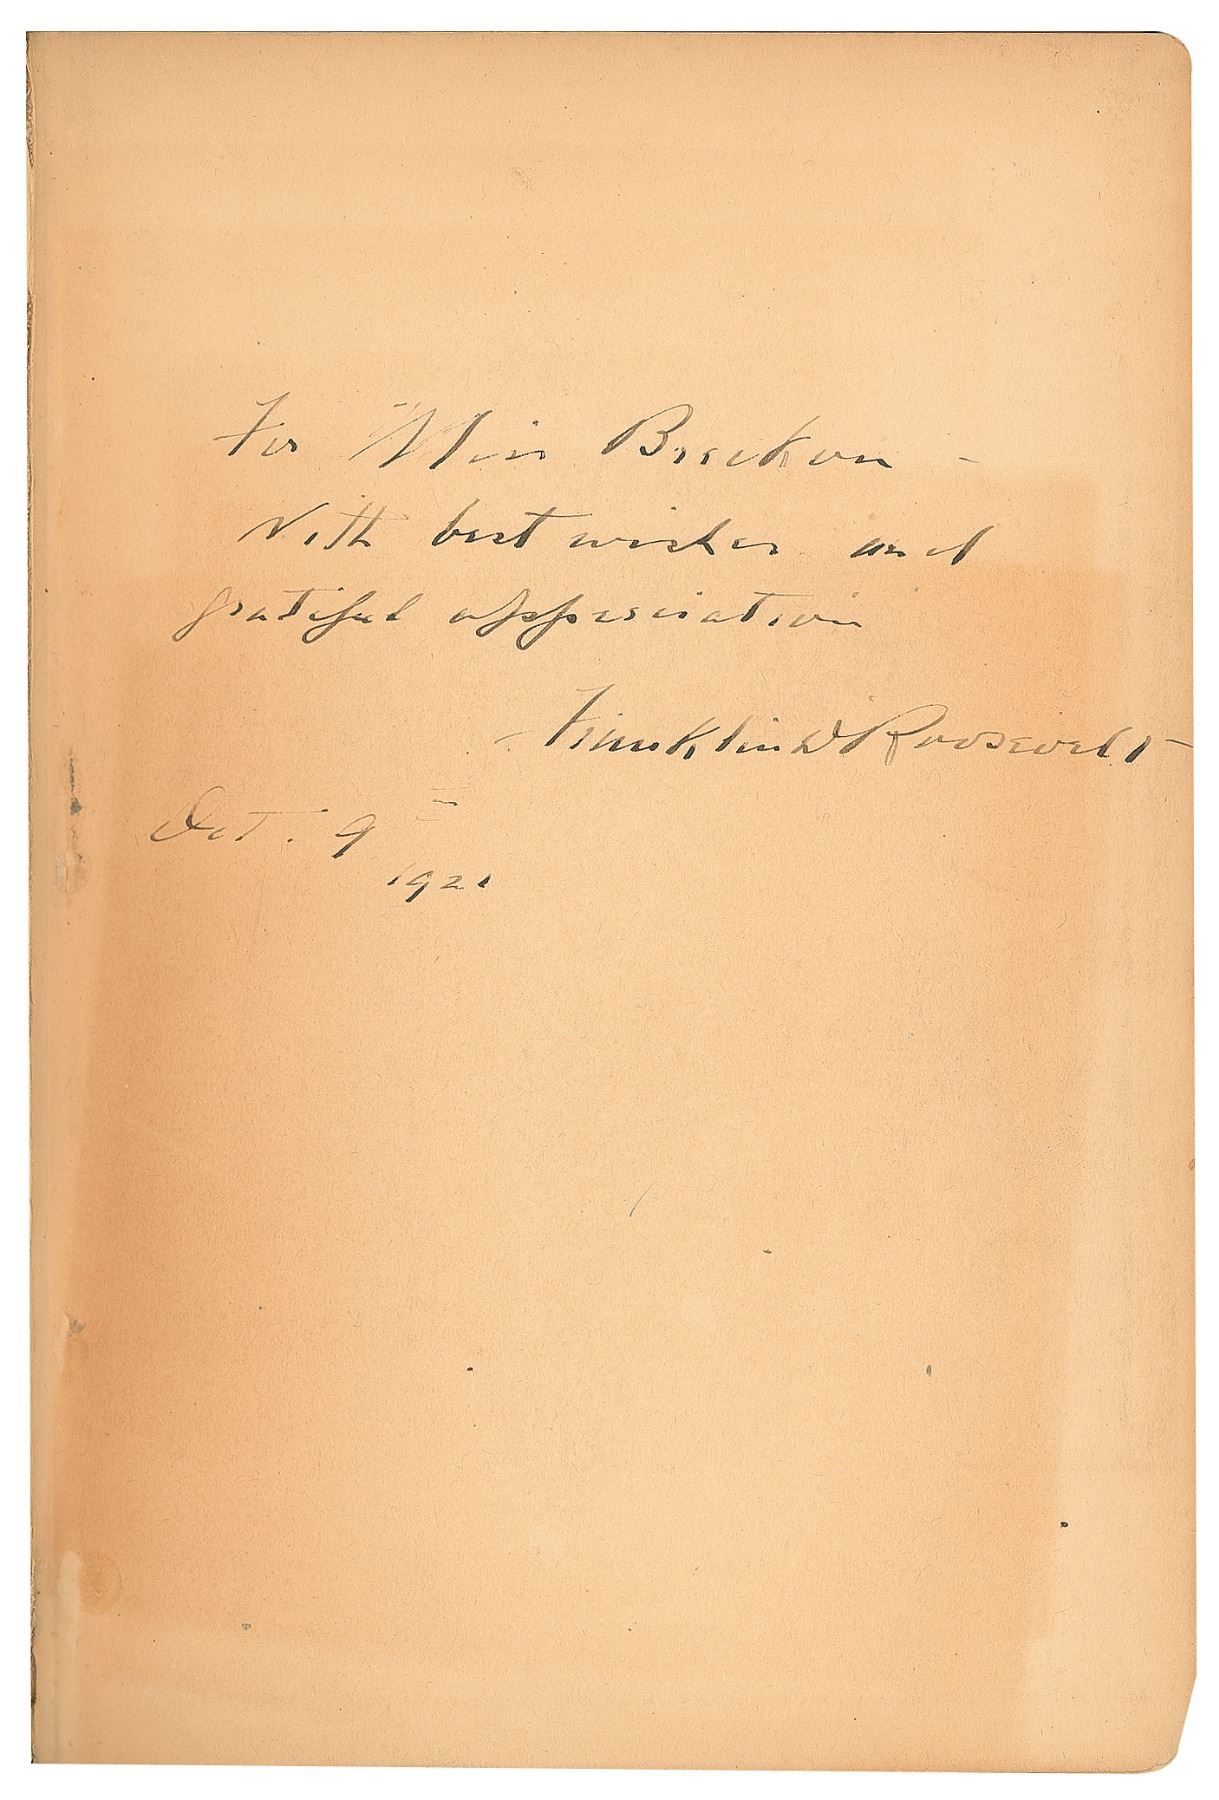 For Miss Brockon -
With best wishes and
grateful appreciation
Franklin D Roosevelt
Oct. 9
1921